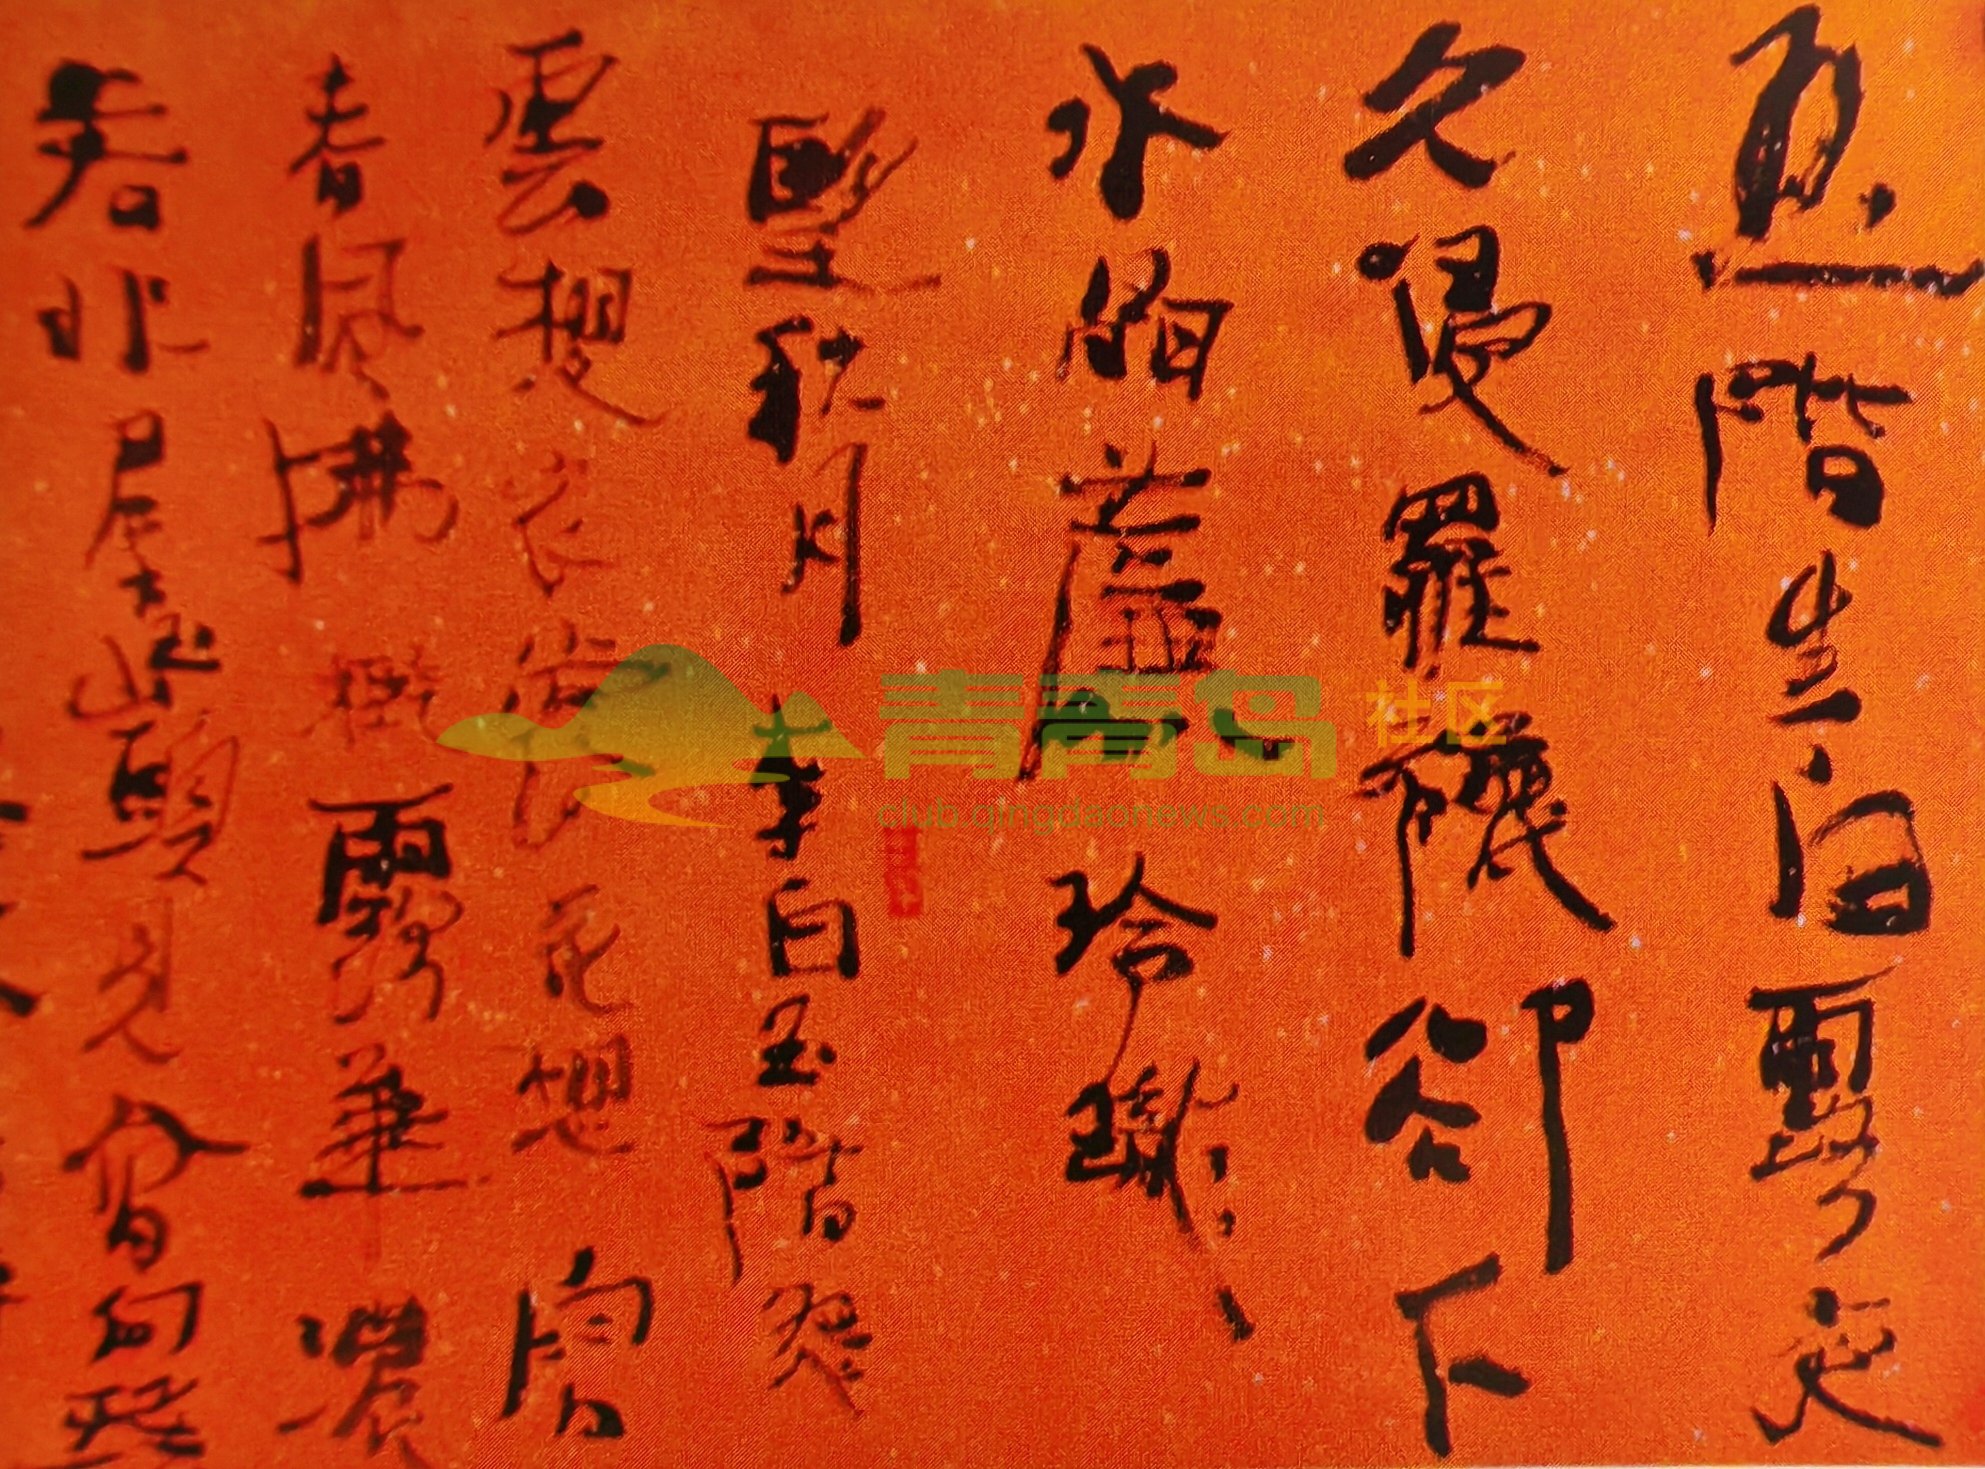 玉階生白露夜
久侵羅襪卻下
水晶簾玲瓏
望秋月 李白玉階怨
雲想衣裳花想容
春風拂檻露華濃
若非群玉山頭見會向瑤
青青岛社区
club.qingdaonews.com